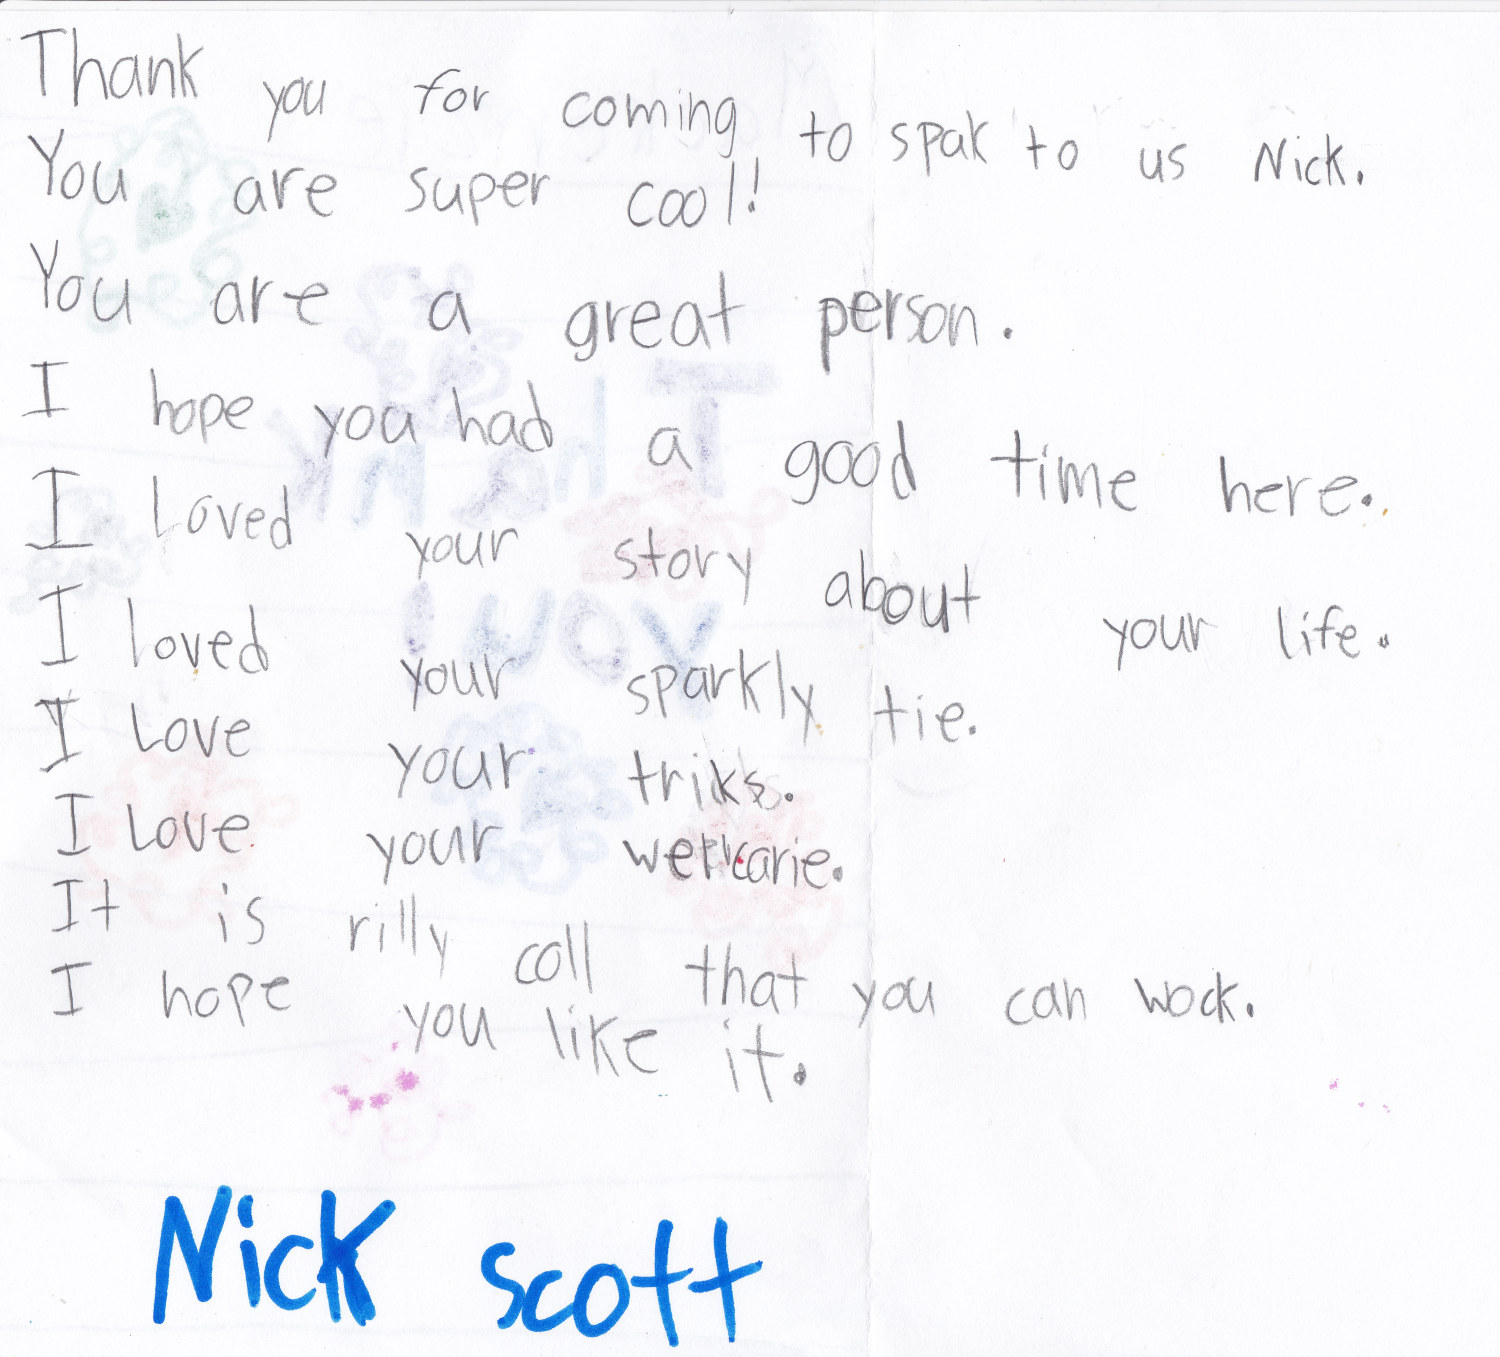 Thank you for coming to spak to us Nick.
You are super cool!
You are a great person.
I hope you had a good time here.
I Loved your story about your life.
I loved your sparkly tie.
I Love your triks.
I Love your werkarie.
It is rilly coll that you can wock.
I hope you like it.
Thank
you!
Nick scott